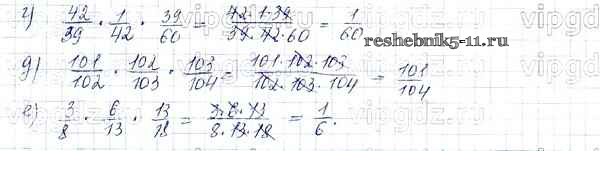 г) 42/39 · 1/42 · 39/60 = 42·1·39/39·42·60 = 1/60
reshebnik5-11.ru
д) 101/102 · 102/103 · 103/104 = 101·102·103/102·103·104 = 101/104
е) 3/8 · 6/13 · 13/18 = 3·6·13/8·13·18 = 1/6.